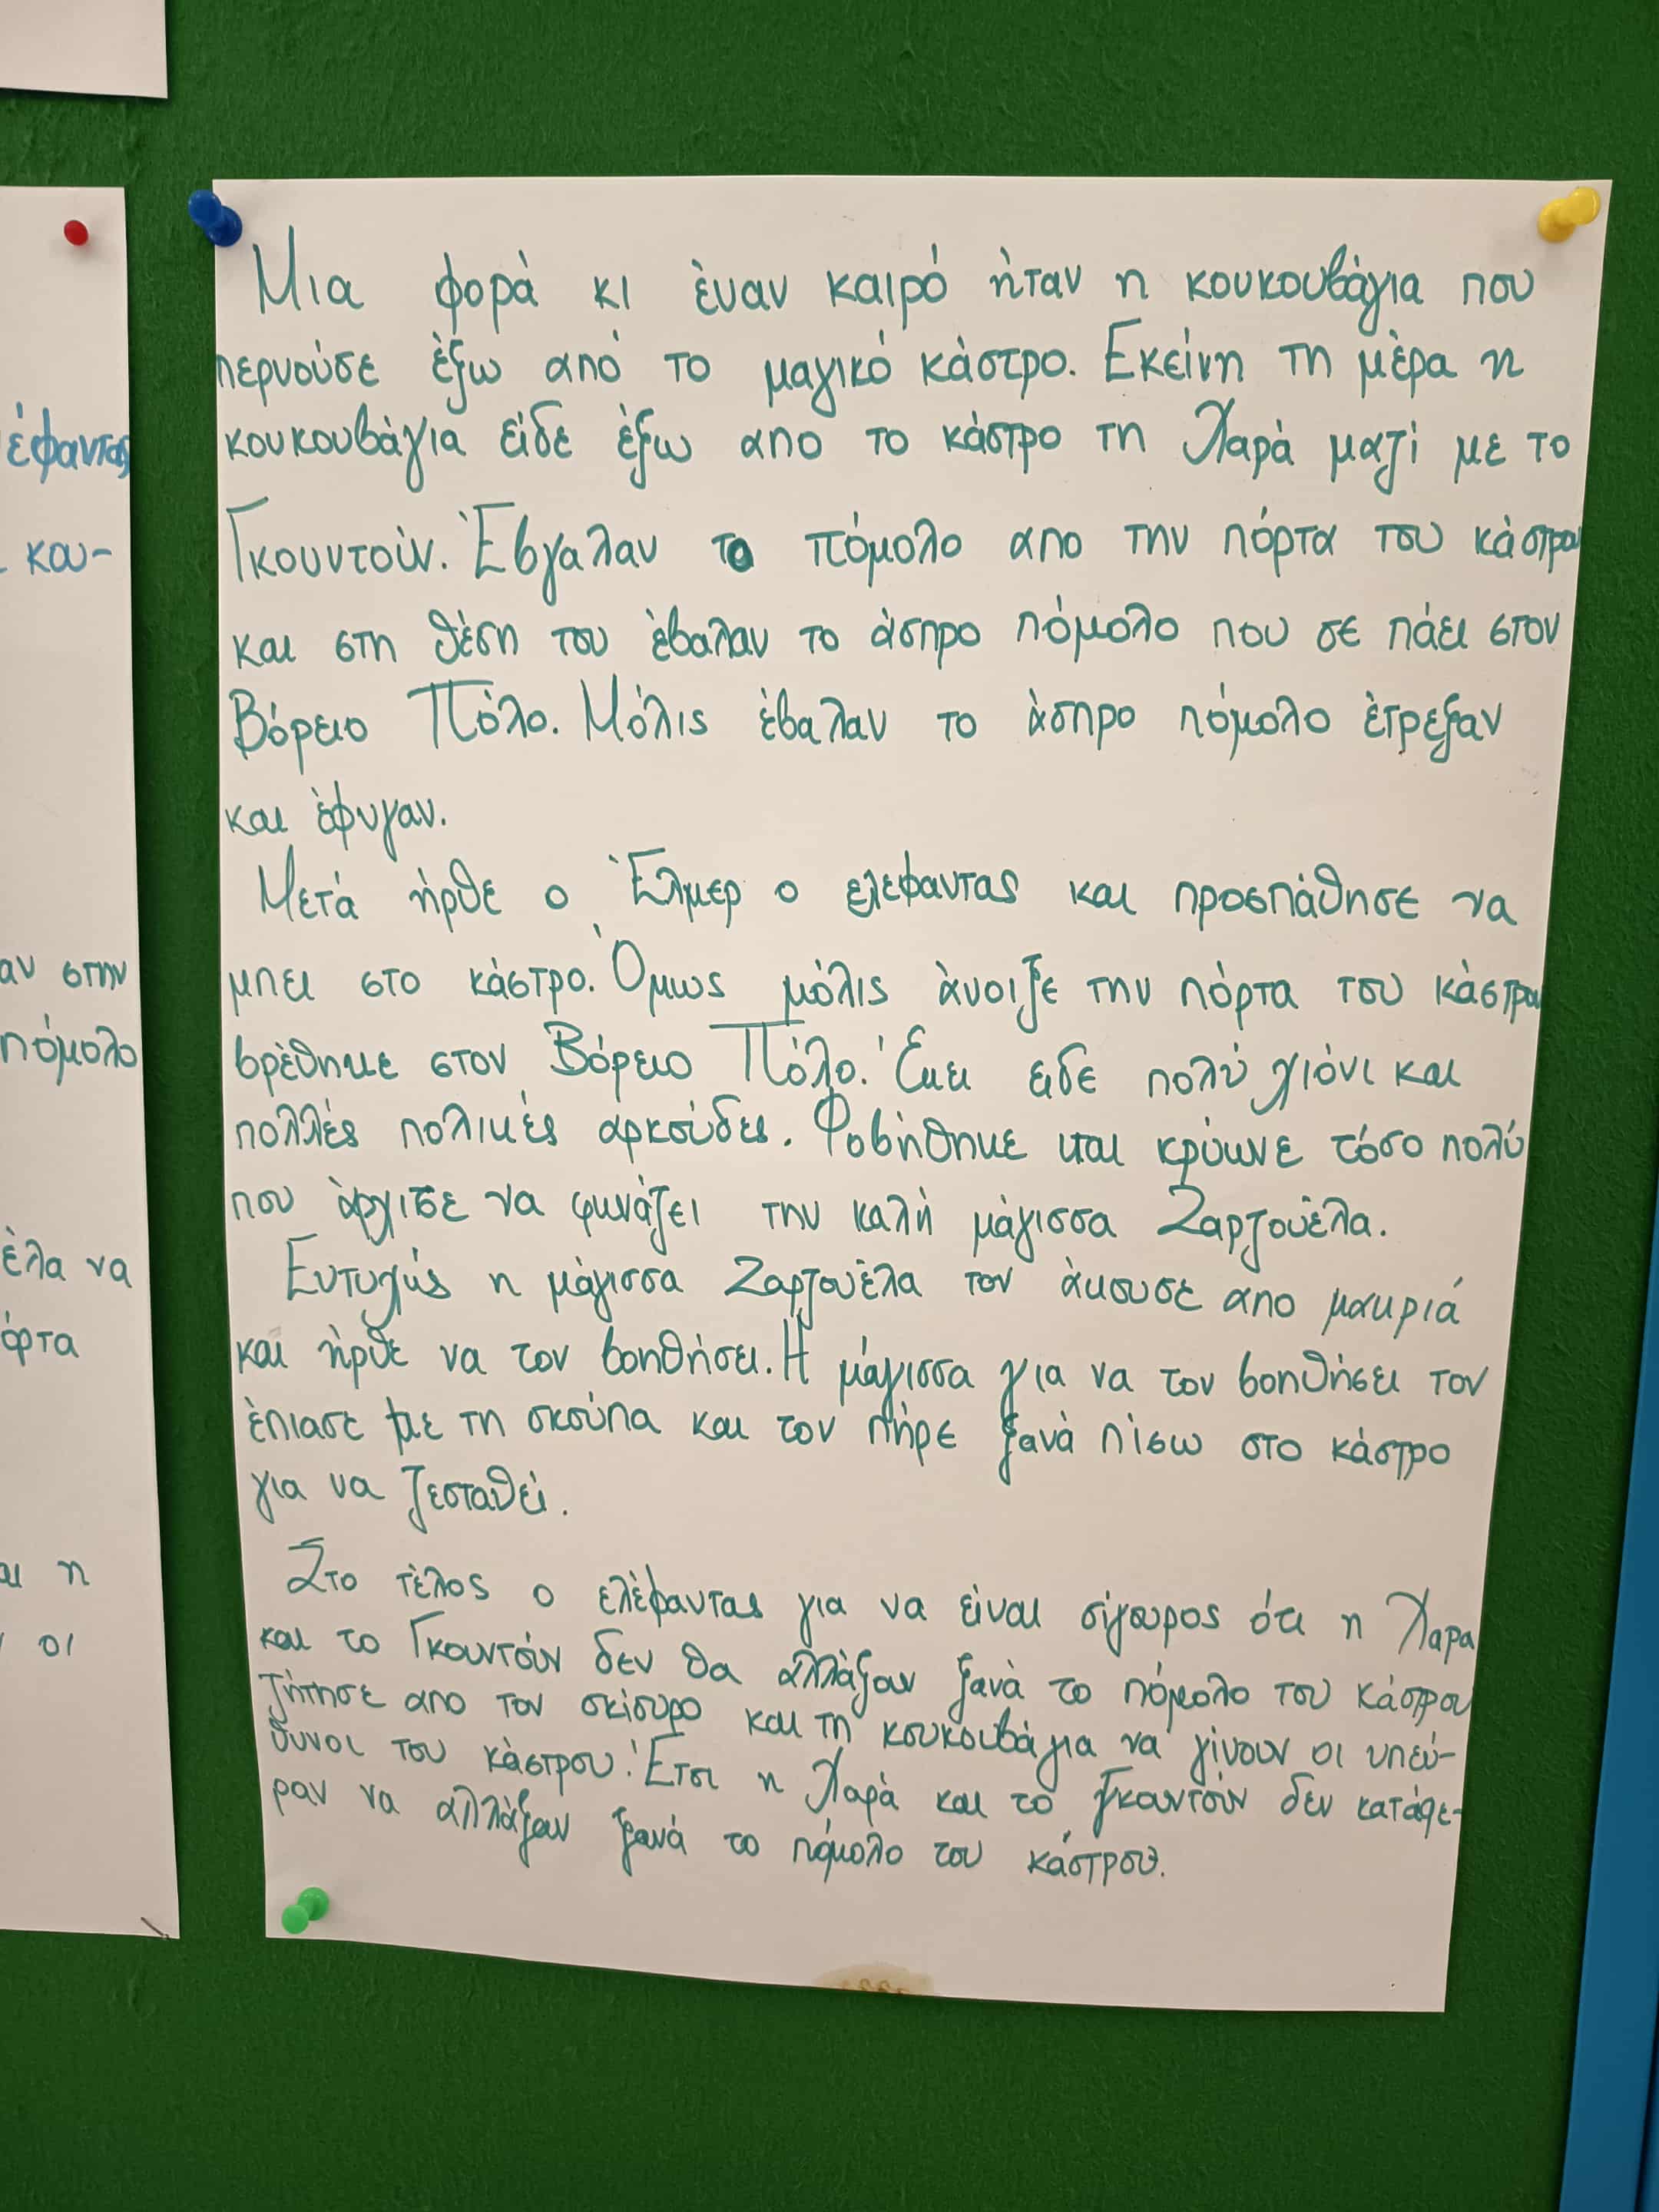 έφαντας
κου-
αν στην
πόμολο
έλα να
όρτα
αι η
οι
Μια φορά κι έναν καιρό ήταν η κουκουβάγια που
περνούσε έξω από το μαγικό κάστρο. Εκείνη τη μέρα η
κουκουβάγια είδε έξω απο το κάστρο τη Χαρά μαζί με το
Γκουντούν. Έβγαλαν το πόμολο απο την πόρτα του κάστρου
και στη θέση του έβαλαν το άσπρο πόμολο που σε πάει στον
Βόρειο Πόλο. Μόλις έβαλαν το άσπρο πόμολο έτρεξαν
και έφυγαν.
Μετά ήρθε ο Έλμερ ο ελεφαντας και προσπάθησε να
μπει στο κάστρο. Όμως μόλις άνοιξε την πόρτα του κάστρου
βρέθηκε στον Βόρειο Πόλο. Έκει ειδε πολύ χιόνι και
πολλές πολικές αρκούδες. Φοβήθηκε και κρύωνε τόσο πολύ
που άρχισε να φωνάζει την καλή μάγισσα Ζαρζουέλα.
Ευτυχώς η μάγισσα Ζαρζουέλα τον άκουσε απο μακριά
και ήρθε να τον βοηθήσει. Η μάγισσα για να τον βοηθήσει τον
έπιασε με τη σκούπα και τον πήρε ξανά πίσω στο κάστρο
για να ζεσταθεί.
Στο τέλος ο ελέφαντας για να είναι σίγουρος ότι η Χαρα
και το Γκουντούν δεν θα αλλάξουν ξανά το πόμολο του κάστρου
ζήτησε απο τον σκίουρο και τη κουκουβάγια να γίνουν οι υπεύ-
θυνοι του κάστρου. Έτσι η Χαρά και το Γκουντούν δεν κατάφε-
ραν να αλλάξουν ξανά το πόμολο του κάστρου.